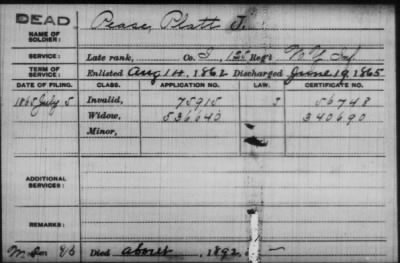 DEAD
Pease, Platt J.
NAME OF SOLDIER:
SERVICE: Late rank, Co. 125 Reg't N.Y. Inf.
TERM OF SERVICE: Enlisted Aug 14, 1862 Discharged June 19, 1865
DATE OF FILING. CLASS. APPLICATION NO. LAW. CERTIFICATE NO.
1865 July 5 Invalid, 75915 56748
Widow, 536640 340690
Minor,
ADDITIONAL SERVICES:
REMARKS:
Died about, 1892,